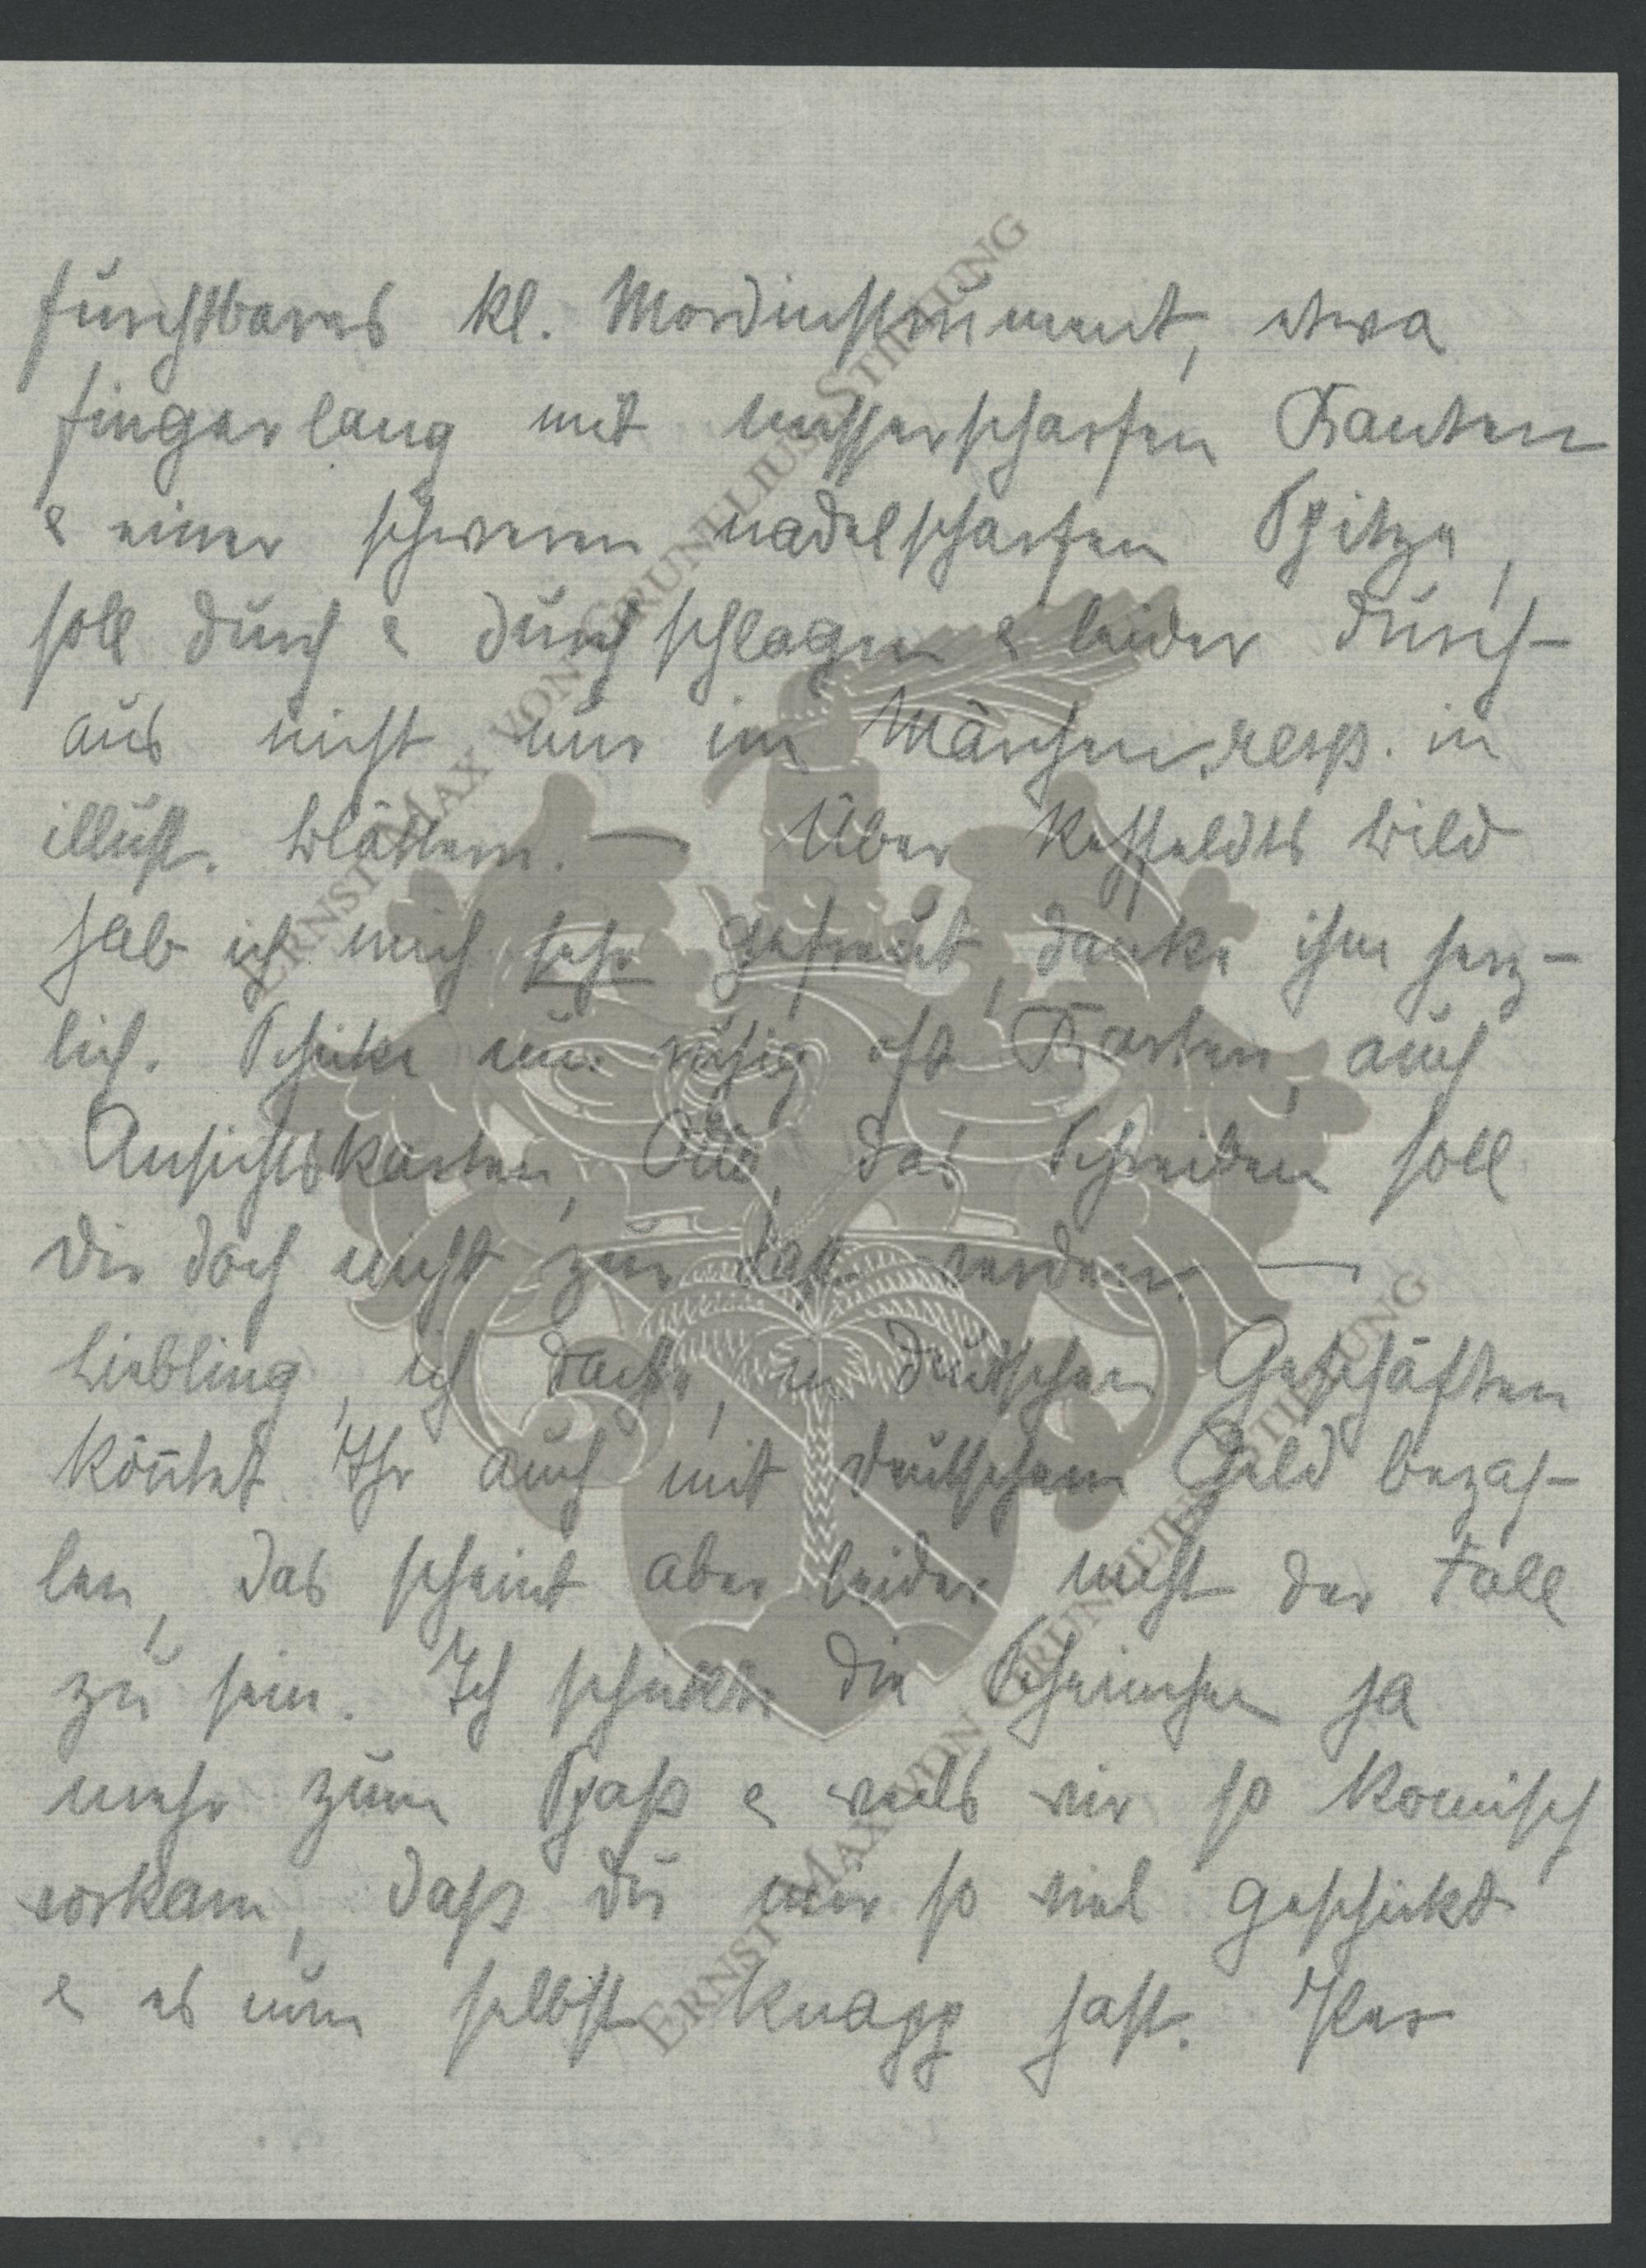 furchtbares kl. Mordinstrument, etwa
fingerlang mit messerscharfen Kanten
& einer schweren nadelscharfen Spitze,
soll durch & durch schlagen & leider durch-
aus nicht nur im Märchen resp. in
illust. Blättern. — Über Kesseldts Bild
hab ich mich sehr gefreut, danke ihm herz-
lich. Schicke nur ruhig oft Karten, auch
Ansichtskarten, das Schreiben soll
Dir doch nicht zur Last werden. —
Liebling, ich dachte, in deutschen Geschäften
kön̄tet Ihr auch mit deutschem Geld bezah-
len, das scheint aber leider nicht der Fall
zu sein. Ich schickte die Scheinchen ja
mehr zum Spaß & weils mir so komisch
vorkam, daß du mir so viel geschickt
& es nun selbst knapp hast.
ERNST MAX VON GRUNELIUS-STIFTUNG
ERNST MAX VON GRUNELIUS-STIFTUNG